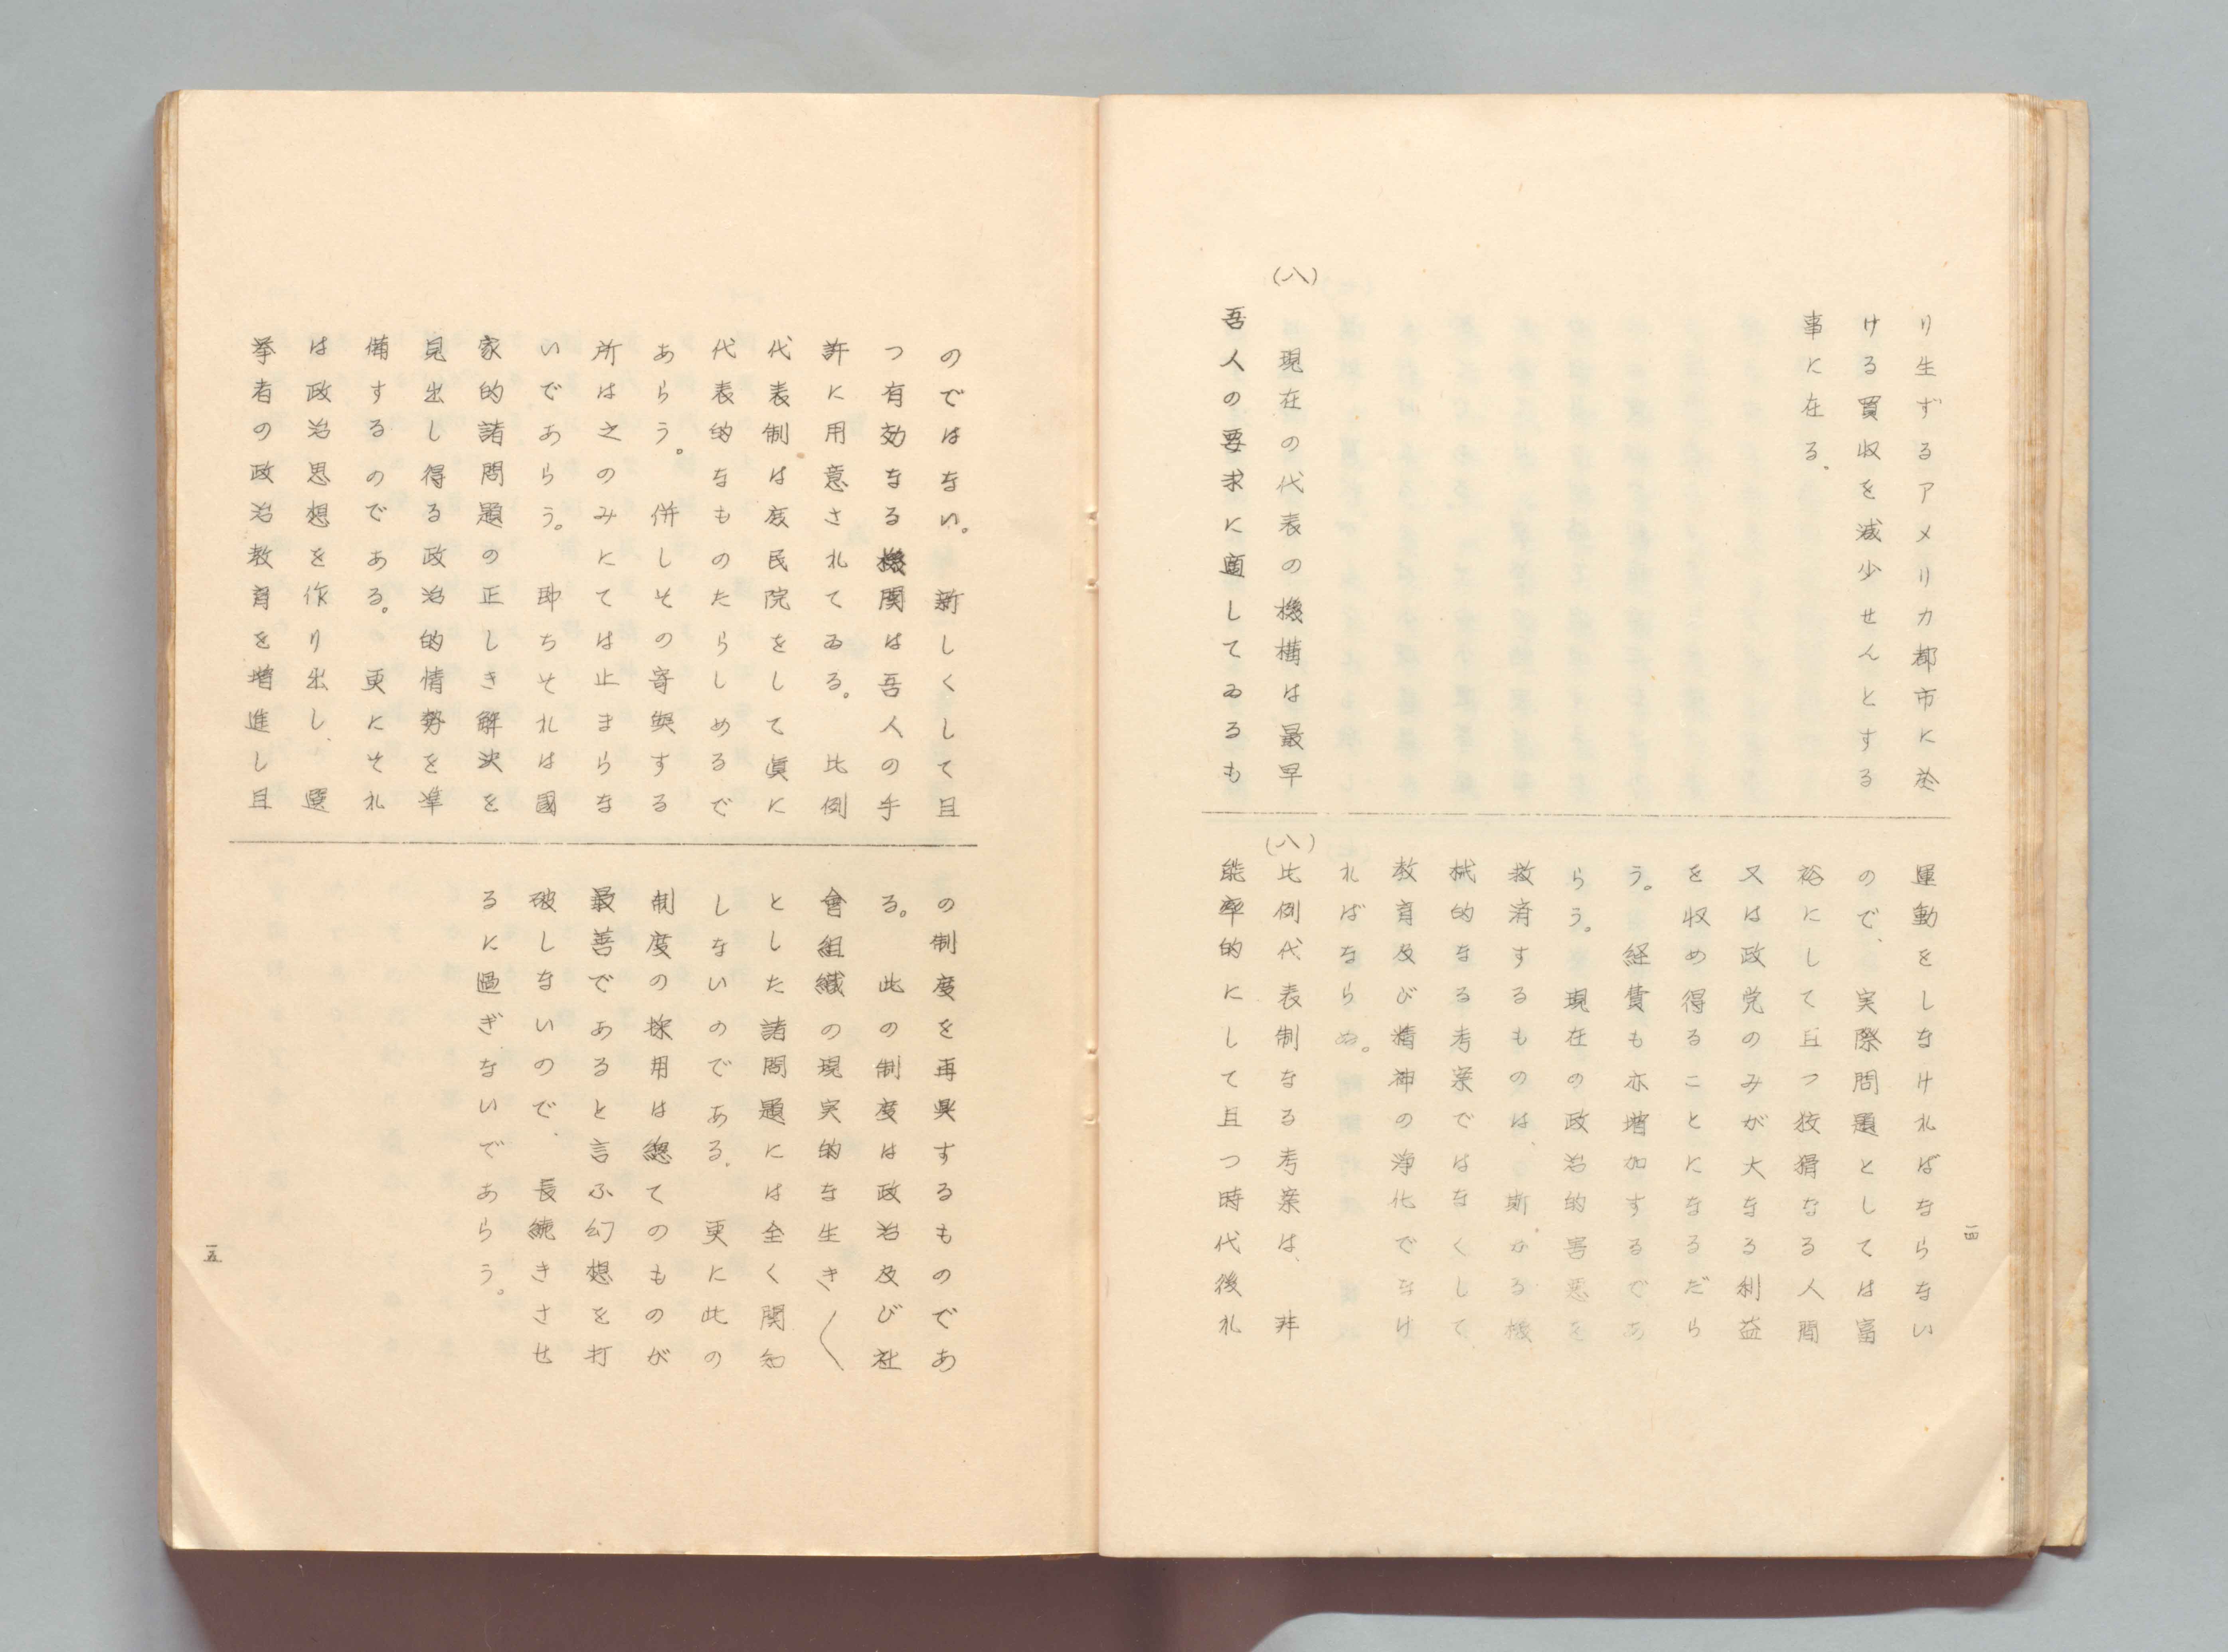 り生ずるアメリカ都市に於
ける買収を減少せんとする
事に在る、
(八)
現在の代表の機構は最早
吾人の要求に適してゐるも
運動をしなければならない
ので、実際問題としては富
裕にして且つ狡猾なる人間
又は政党のみが大なる利益
を収め得ることになるだら
う。経費も亦増加するであ
らう。現在の政治的害悪を
救済するものは、斯かる機
械的なる考案ではなくして
教育及び精神の浄化でなけ
ればならぬ。
(八)
比例代表制なる考案は、非
能率的にして且つ時代後れ
一四
のではない。新しくして且
つ有効なる機関は吾人の手
許に用意されてゐる。比例
代表制は庶民院をして眞に
代表的なものたらしめるで
あらう。併しその寄與する
所は之のみにては止まらな
いであらう。即ちそれは國
家的諸問題の正しき解決を
見出し得る政治的情勢を準
備するのである。更にそれ
は政治思想を作り出し、選
挙者の政治教育を増進し且
の制度を再興するものであ
る。此の制度は政治及び社
會組織の現実的な生き〱
とした諸問題には全く関知
しないのである、更に此の
制度の採用は總てのものが
最善であると言ふ幻想を打
破しないので、長続きさせ
るに過ぎないであらう。
一五